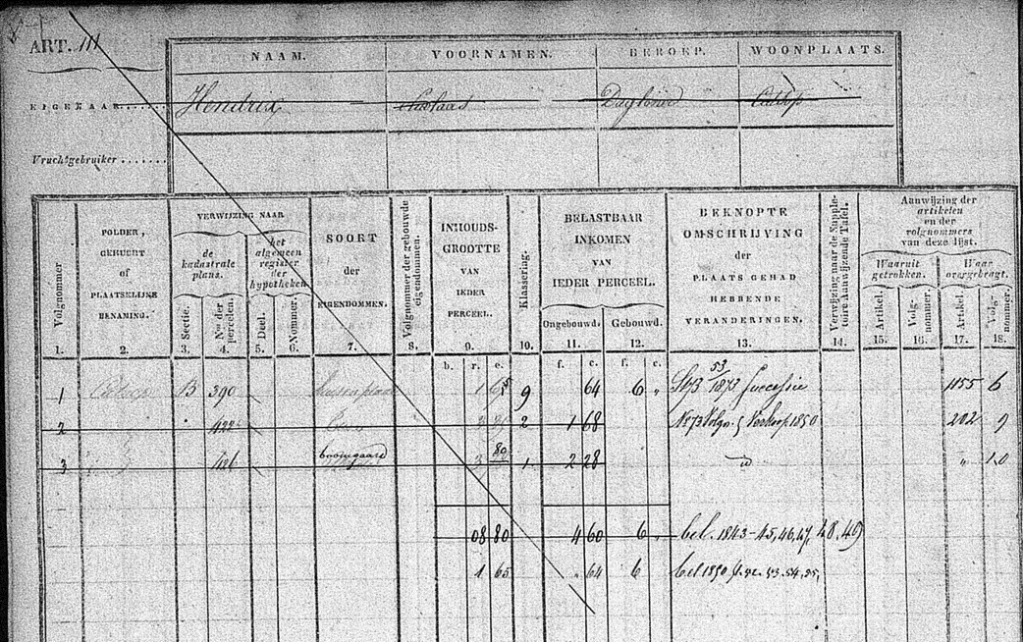 ART. 111
NAAM. VOORNAMEN. BEROEP. WOONPLAATS.
EIGENAAR Hendrix Daglooner
Vruchtgebruiker .......
Volgnommer
1.
POLDER,
GEHUCHT
of
PLAATSELIJKE
BENAMING.
2.
VERWIJZING NAAR
de
kadastrale
plans.
Sectie.
3.
Nos der
perceelen.
4.
het
algemeen
register
der
hypotheken
Deel.
5.
Nommer.
6.
SOORT
der
EIGENDOMMEN.
7.
Volgnommer der gebouwde
eigendommen.
8.
INHOUDS-
GROOTTE
VAN
IEDER
PERCEEL.
9.
Klassering.
10.
BELASTBAAR
INKOMEN
VAN
IEDER PERCEEL.
Ongebouwd.
11.
Gebouwd.
12.
BEKNOPTE
OMSCHRIJVING
DER
PLAATS GEHAD
HEBBENDE
VERANDERINGEN.
13.
Verwijzing naar de Supple-
toire Aanwijzende Tafel.
14.
Aanwijzing der
artikelen
en der
volgnommers
van deze lijst.
Waaruit
getrokken.
Artikel.
15.
Volg-
nommer.
16.
Waar
overgebragt.
Artikel.
17.
Volg-
nommer.
18.
b. r. e. f. c. f. c.
1 B 390 1 65 9 64 6 „ 53 1873 Successie 1155 6
2 422 2 1 68 Verkoop 1850 202 9
3 426 boomgaard 3 80 1 2 28 id „ 10
08 80 4 60 6 „ bel. 1843-45,46,47,48.49
1 65 „ 64 6 bel 1850 53.54.55,